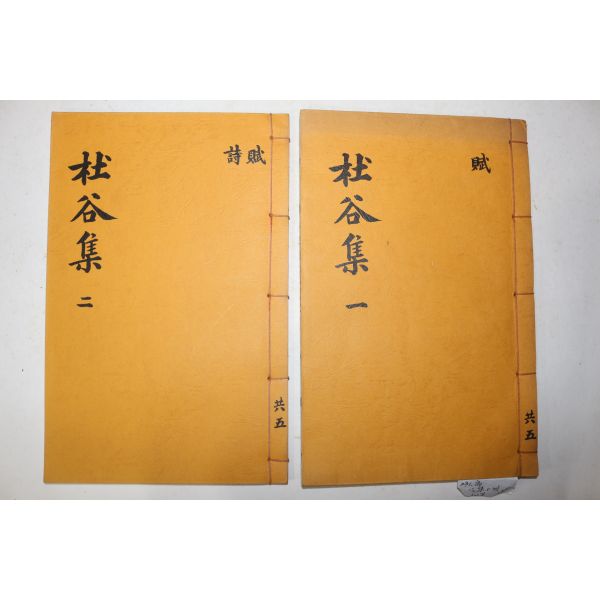 賦
杜谷集 一
共五
賦詩
杜谷集 二
共五